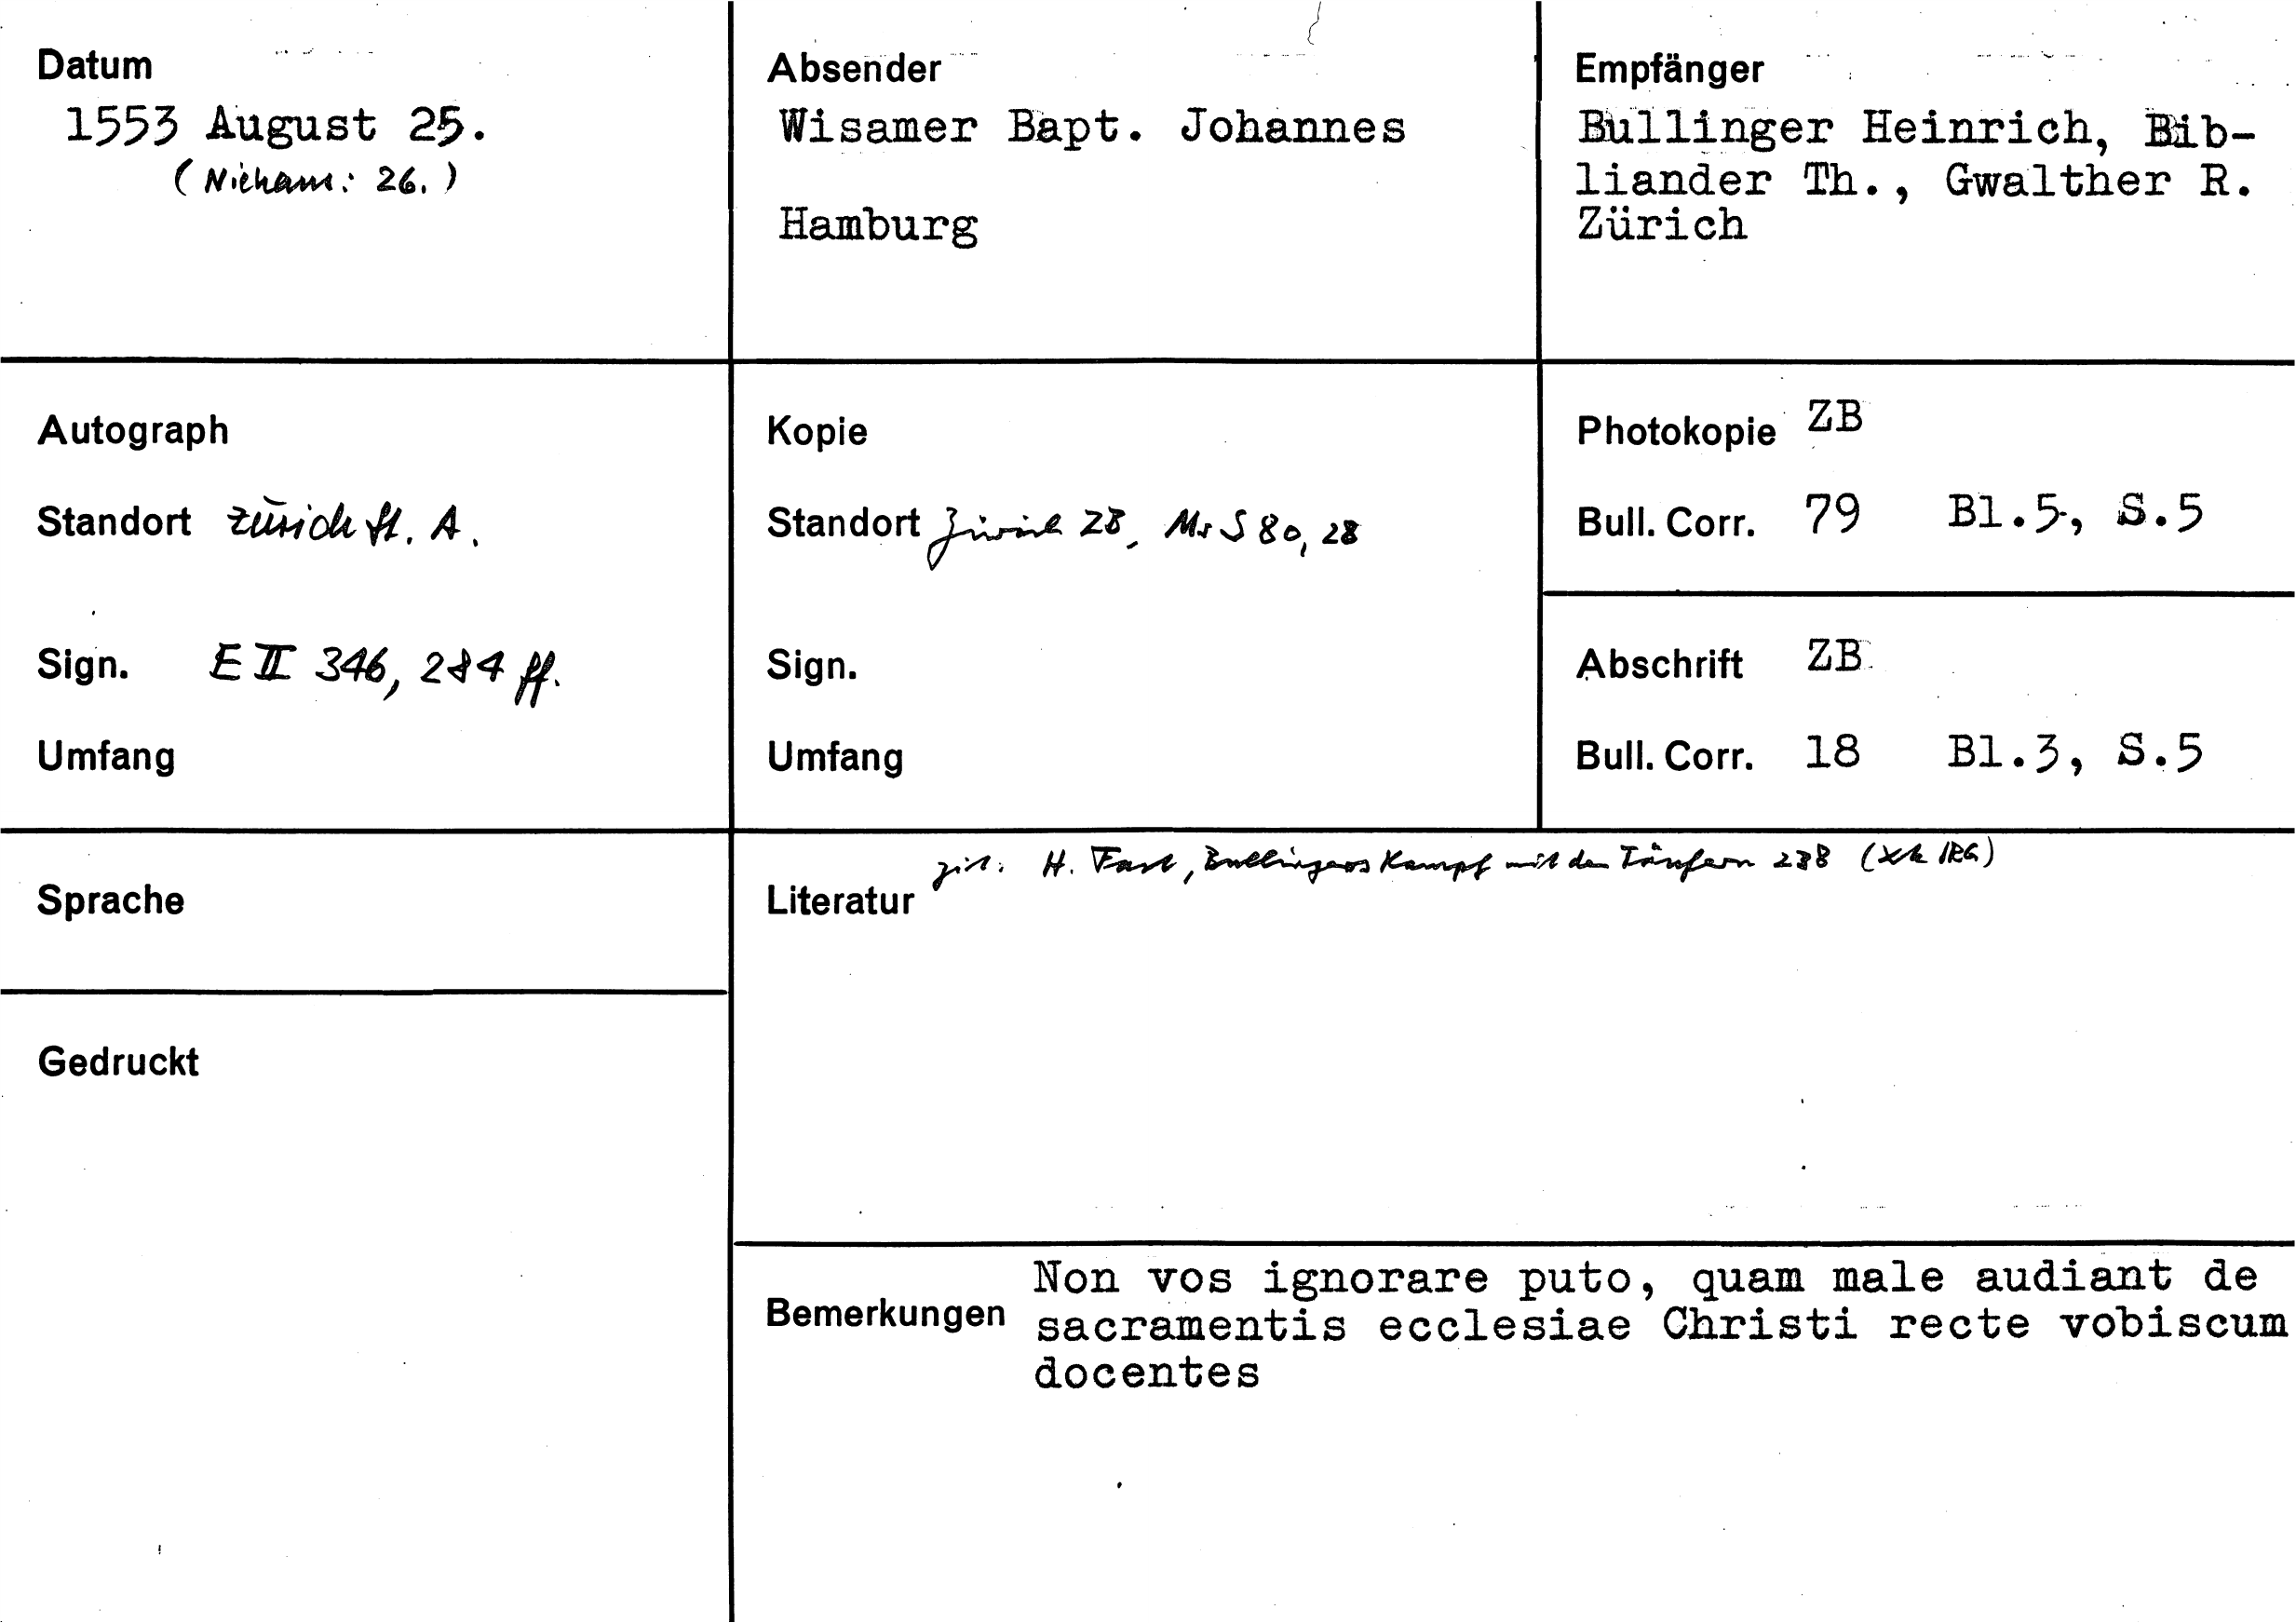 Datum
1553 August 25.
(Nicham: 26.)
Absender
Wisamer Bapt. Johannes
Hamburg
Empfänger
Bullinger Heinrich, Bib-
liander Th., Gwalther R.
Zürich
Autograph
Standort Zürich St. A.
Sign. E II 346, 284 ff.
Umfang
Kopie
Standort Zürich ZB, Ms S 80, 28
Sign.
Umfang
Photokopie ZB
Bull. Corr. 79 Bl.5, S.5
Abschrift ZB
Bull. Corr. 18 Bl.3, S.5
Sprache
Gedruckt
zit. H. Fast, Bullingers Kampf mit den Täufern 238
Literatur
Bemerkungen
Non vos ignorare puto, quam male audiant de
sacramentis ecclesiae Christi recte vobiscum
docentes